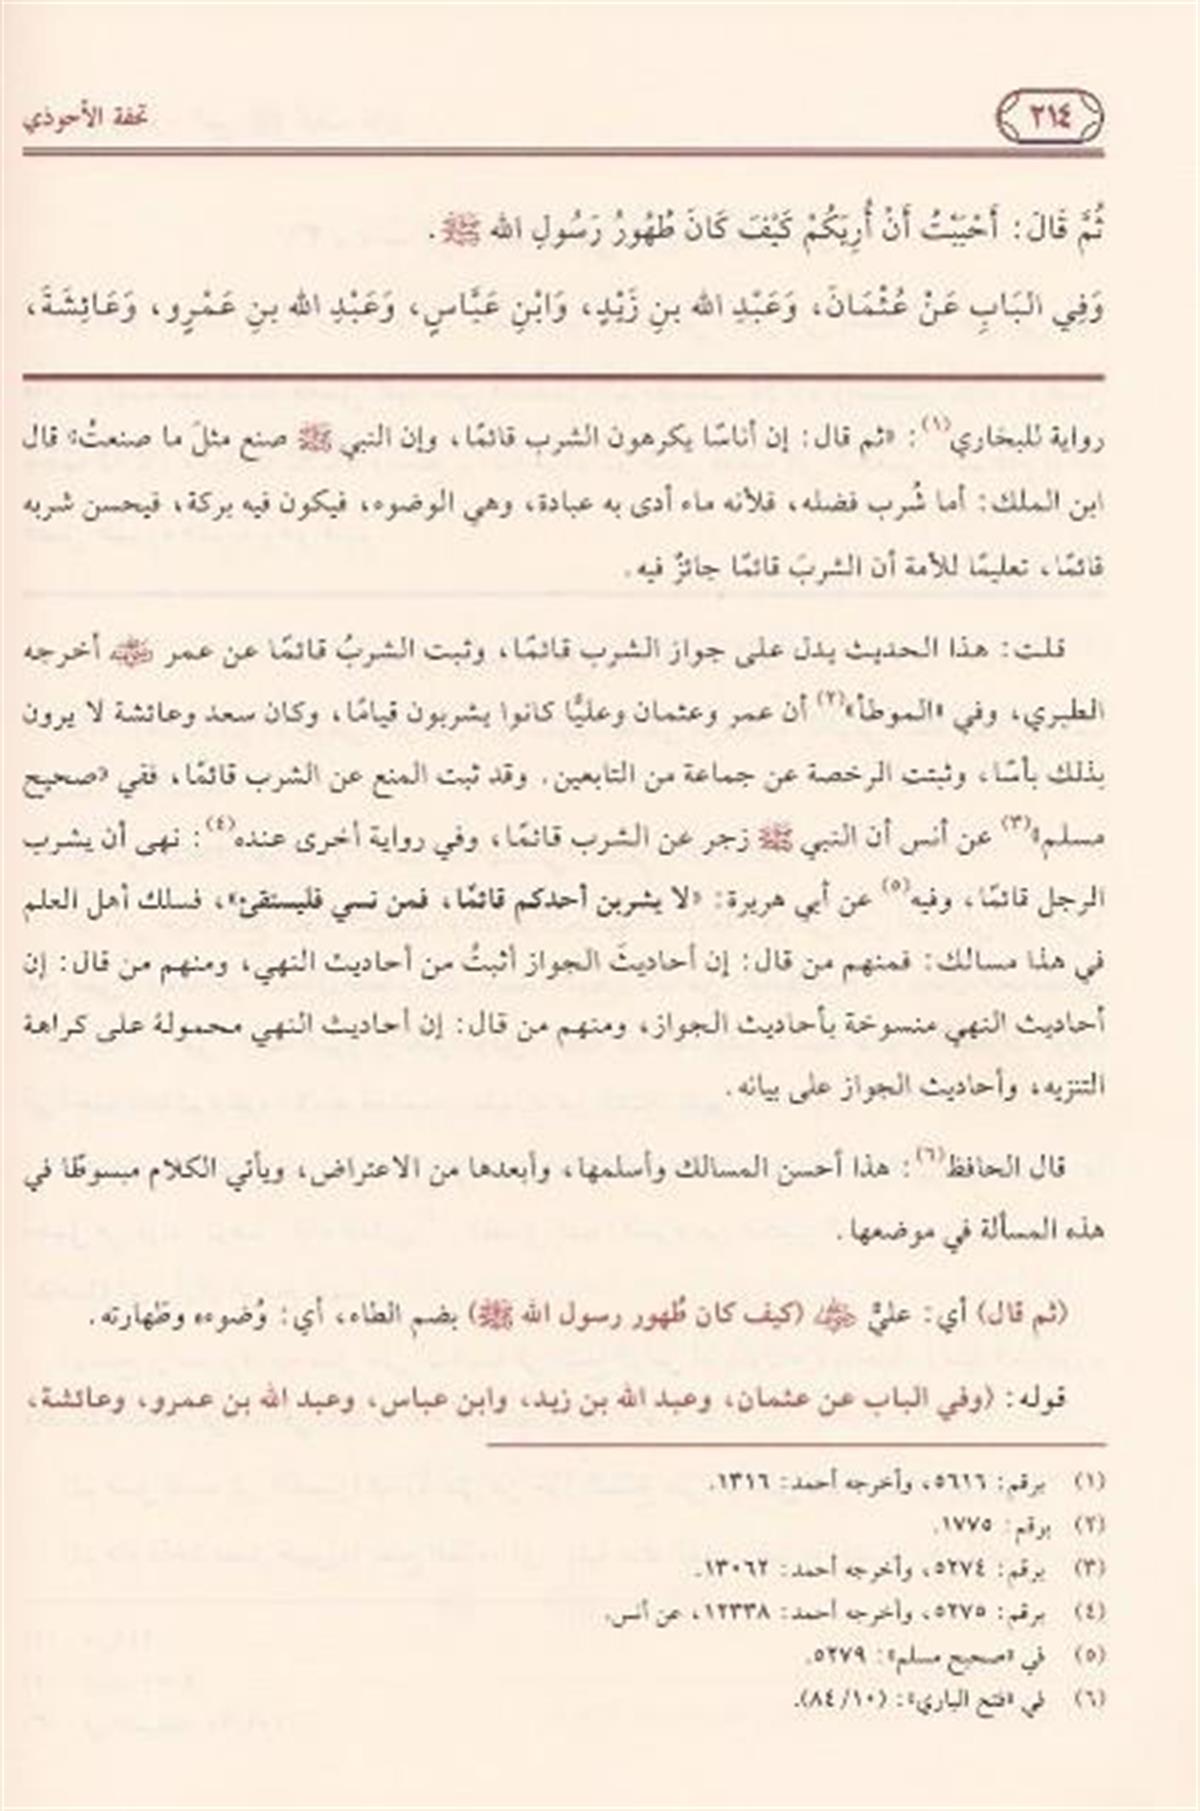 ٢١٤
تحفة الأحوذي
ثُمَّ قَالَ: أَحْبَبْتُ أَنْ أُرِيَكُمْ كَيْفَ كَانَ طُهُورُ رَسُولِ الله ﷺ.
وَفِي البَابِ عَنْ عُثْمَانَ، وَعَبْدِ الله بنِ زَيْدٍ، وَابْنِ عَبَّاسٍ، وَعَبْدِ الله بنِ عَمْرٍو، وَعَائِشَةَ،
رواية للبخاري(١): «ثم قال: إن أناسًا يكرهون الشرب قائمًا، وإن النبي ﷺ صنع مثلَ ما صنعتُ» قال
ابن الملك: أما شُرب فضله، فلأنه ماء أدى به عبادة، وهي الوضوء، فيكون فيه بركة، فيحسن شربه
قائمًا، تعليمًا للأمة أن الشربَ قائمًا جائزٌ فيه.
قلت: هذا الحديث يدل على جواز الشرب قائمًا، وثبت الشربُ قائمًا عن عمر رضي الله عنه أخرجه
الطبري، وفي «الموطأ»(٢) أن عمر وعثمان وعليًّا كانوا يشربون قيامًا، وكان سعد وعائشة لا يرون
بذلك بأسًا، وثبتت الرخصة عن جماعة من التابعين. وقد ثبت المنع عن الشرب قائمًا، ففي «صحيح
مسلم»(٣) عن أنس أن النبي ﷺ زجر عن الشرب قائمًا، وفي رواية أخرى عنده(٤): نهى أن يشرب
الرجل قائمًا، وفيه(٥) عن أبي هريرة: «لا يشربن أحدكم قائمًا، فمن نسي فليستقئ»، فسلك أهل العلم
في هذا مسالك: فمنهم من قال: إن أحاديثَ الجواز أثبتُ من أحاديث النهي، ومنهم من قال: إن
أحاديث النهي منسوخة بأحاديث الجواز، ومنهم من قال: إن أحاديث النهي محمولة على كراهة
التنزيه، وأحاديث الجواز على بيانه.
قال الحافظ(٦): هذا أحسن المسالك وأسلمها، وأبعدها من الاعتراض، ويأتي الكلام مبسوطًا في
هذه المسألة في موضعها.
(ثم قال) أي: عليٌّ رضي الله عنه (كيف كان طُهور رسول الله ﷺ) بضم الطاء، أي: وُضوءه وطهارته.
قوله: (وفي الباب عن عثمان، وعبد الله بن زيد، وابن عباس، وعبد الله بن عمرو، وعائشة،
(١) برقم: ٥٦١٦، وأخرجه أحمد: ١٣١٦.
(٢) برقم: ١٧٧٥.
(٣) برقم: ٥٢٧٤، وأخرجه أحمد: ١٣٠٦٢.
(٤) برقم: ٥٢٧٥، وأخرجه أحمد: ١٢٣٣٨، عن أنس.
(٥) في «صحيح مسلم»: ٥٢٧٩.
(٦) في «فتح الباري»: (٨٤/١٠).